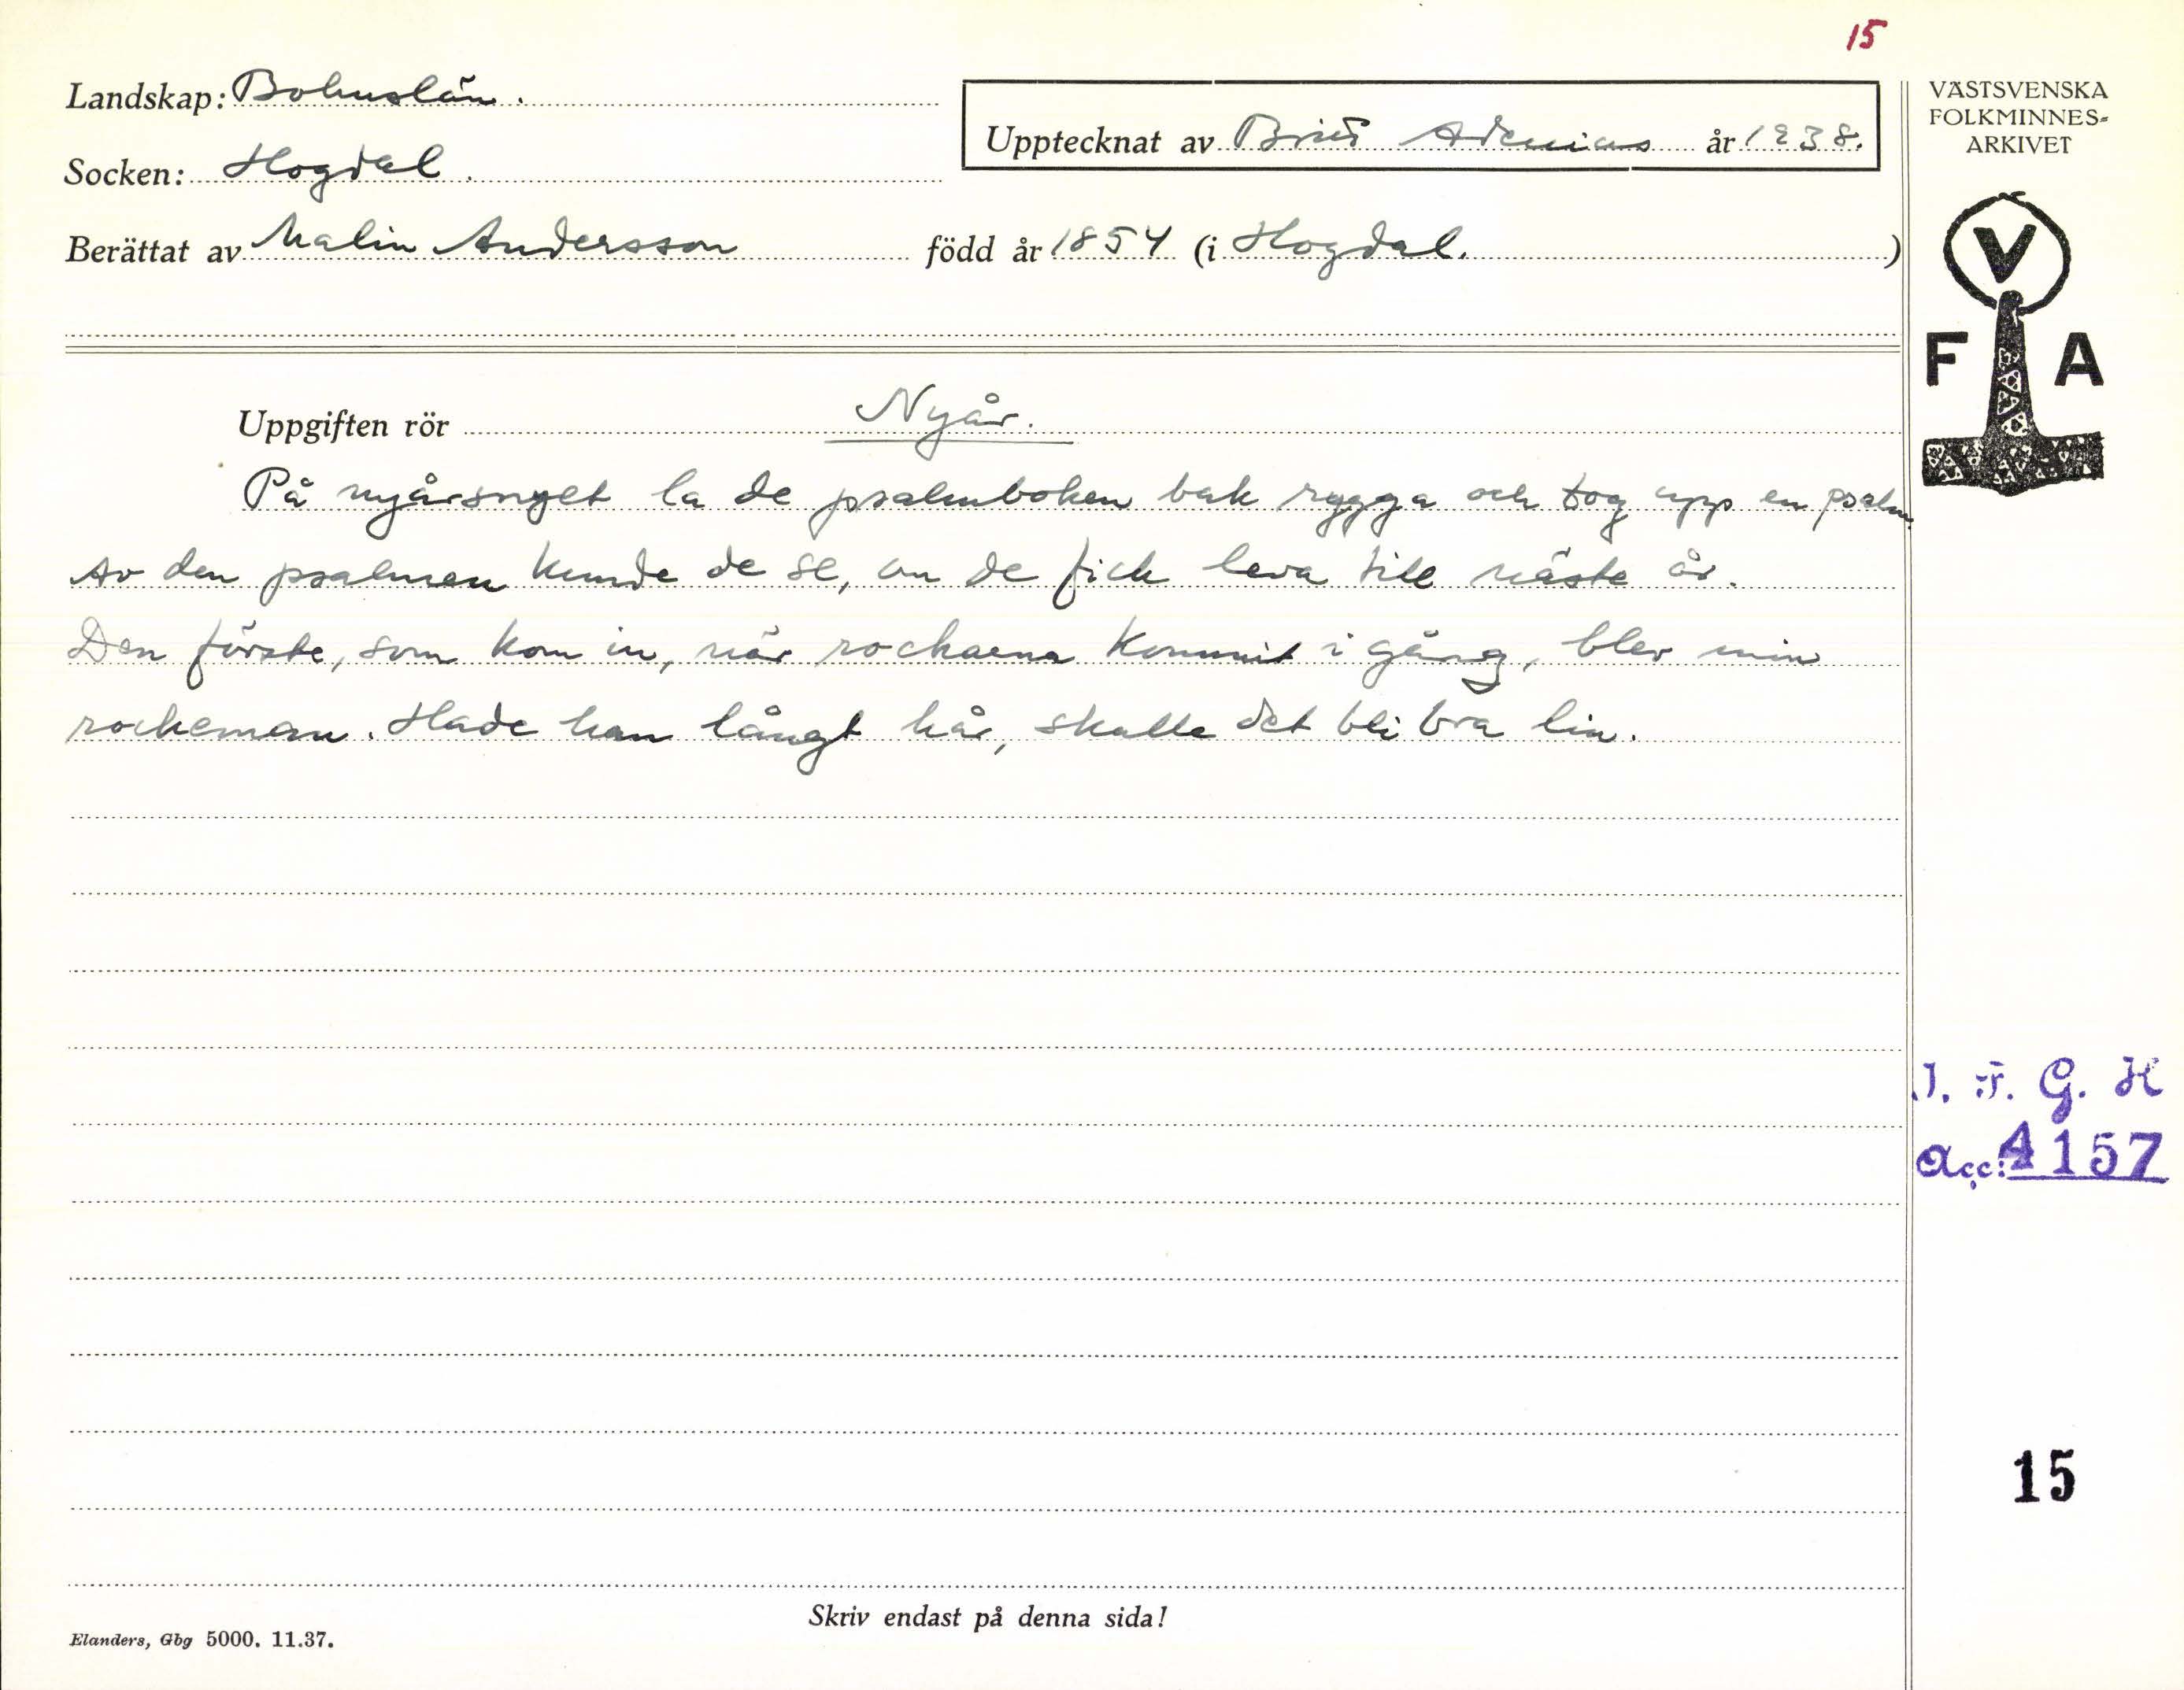 15
Landskap: Bohuslän.
Upptecknat av Brita Adenius år 1938.
Socken: Hogdal.
Berättat av Malin Andersson född år 1854 (i Hogdal.)
VÄSTSVENSKA
FOLKMINNES-
ARKIVET
V
F A
Uppgiften rör Nyår.
På nyårsnyet la de psalmboken bak rygga och tog upp en psalm.
Av den psalmen kunde de se, om de fick leva till näste år.
Den förste, som kom in, när rockarna kommit i gång, blev min
rockeman. Hade han långt hår, skulle det bli bra lin.
I. F. G. H
Acc: 4157
15
Skriv endast på denna sida!
Elanders, Gbg 5000. 11.37.